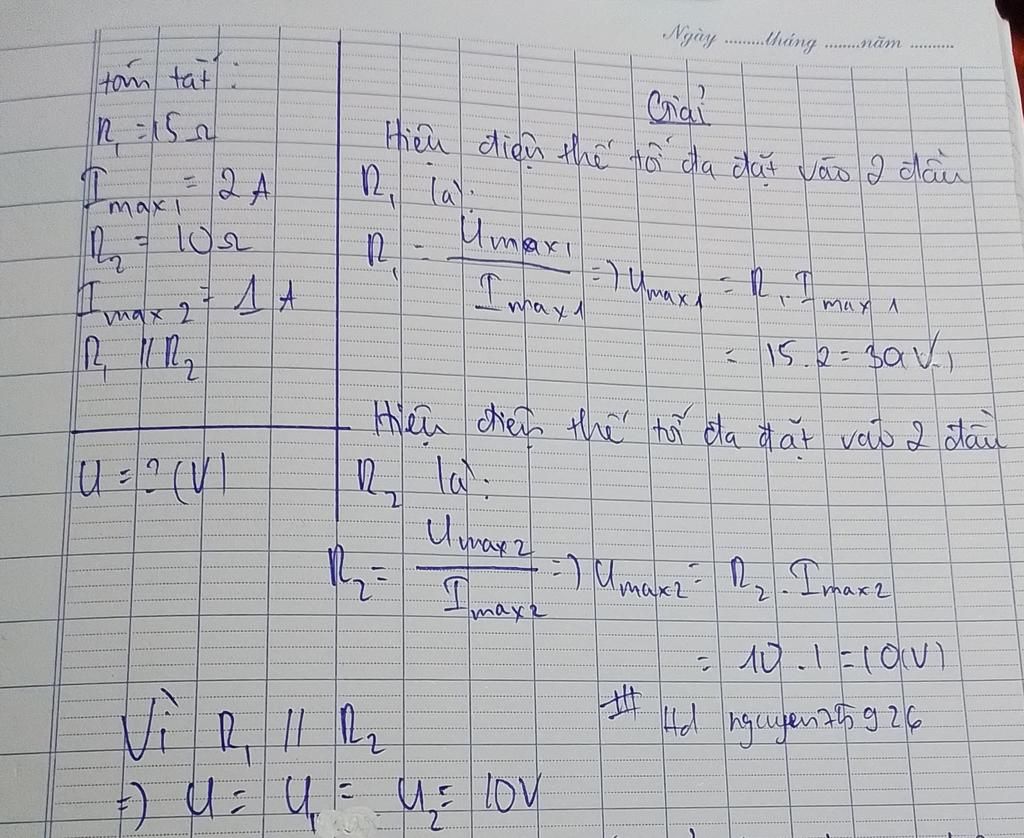 Ngày ......... tháng ........ năm ..........
tóm tắt :
R₁ = 15 Ω
I max1 = 2 A
R₂ = 10 Ω
I max2 = 1 A
R₁ // R₂
U = ? (V)
Giải
Hiệu điện thế tối đa đặt vào 2 đầu
R₁ là:
R₁ = U max1 / I max1 => U max1 = R₁ . I max1
= 15 . 2 = 30 (V)
Hiệu điện thế tối đa đặt vào 2 đầu
R₂ là:
R₂ = U max2 / I max2 => U max2 = R₂ . I max2
= 10 . 1 = 10 (V)
# Hd nguyen75926
Vì R₁ // R₂
=> U = U₁ = U₂ = 10V